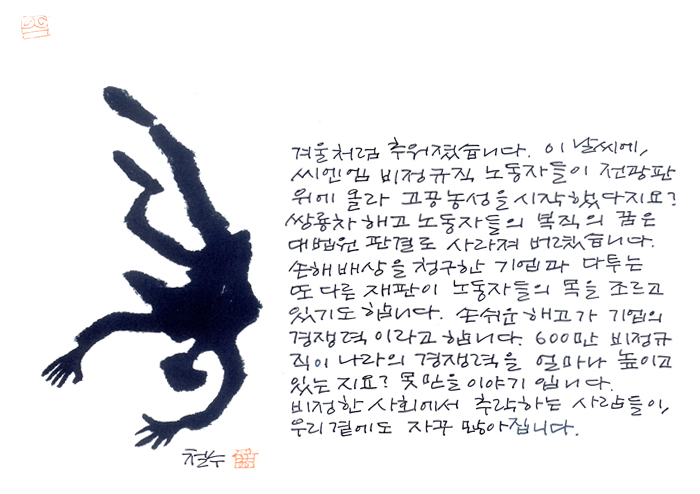 겨울처럼 추워졌습니다. 이 날씨에,
씨엔엠 비정규직 노동자들이 전광판
위에 올라 고공농성을 시작했다지요?
쌍용차 해고 노동자들의 복직의 꿈은
대법원 판결로 사라져 버렸습니다.
손해배상을 청구한 기업과 다투는
또 다른 재판이 노동자들의 목을 조르고
있기도 합니다. 손쉬운 해고가 기업의
경쟁력이라고 합니다. 600만 비정규
직이 나라의 경쟁력을 얼마나 높이고
있는지요? 못 믿을 이야기입니다.
비정한 사회에서 추락하는 사람들이,
우리 곁에도 자꾸 많아집니다.
철수